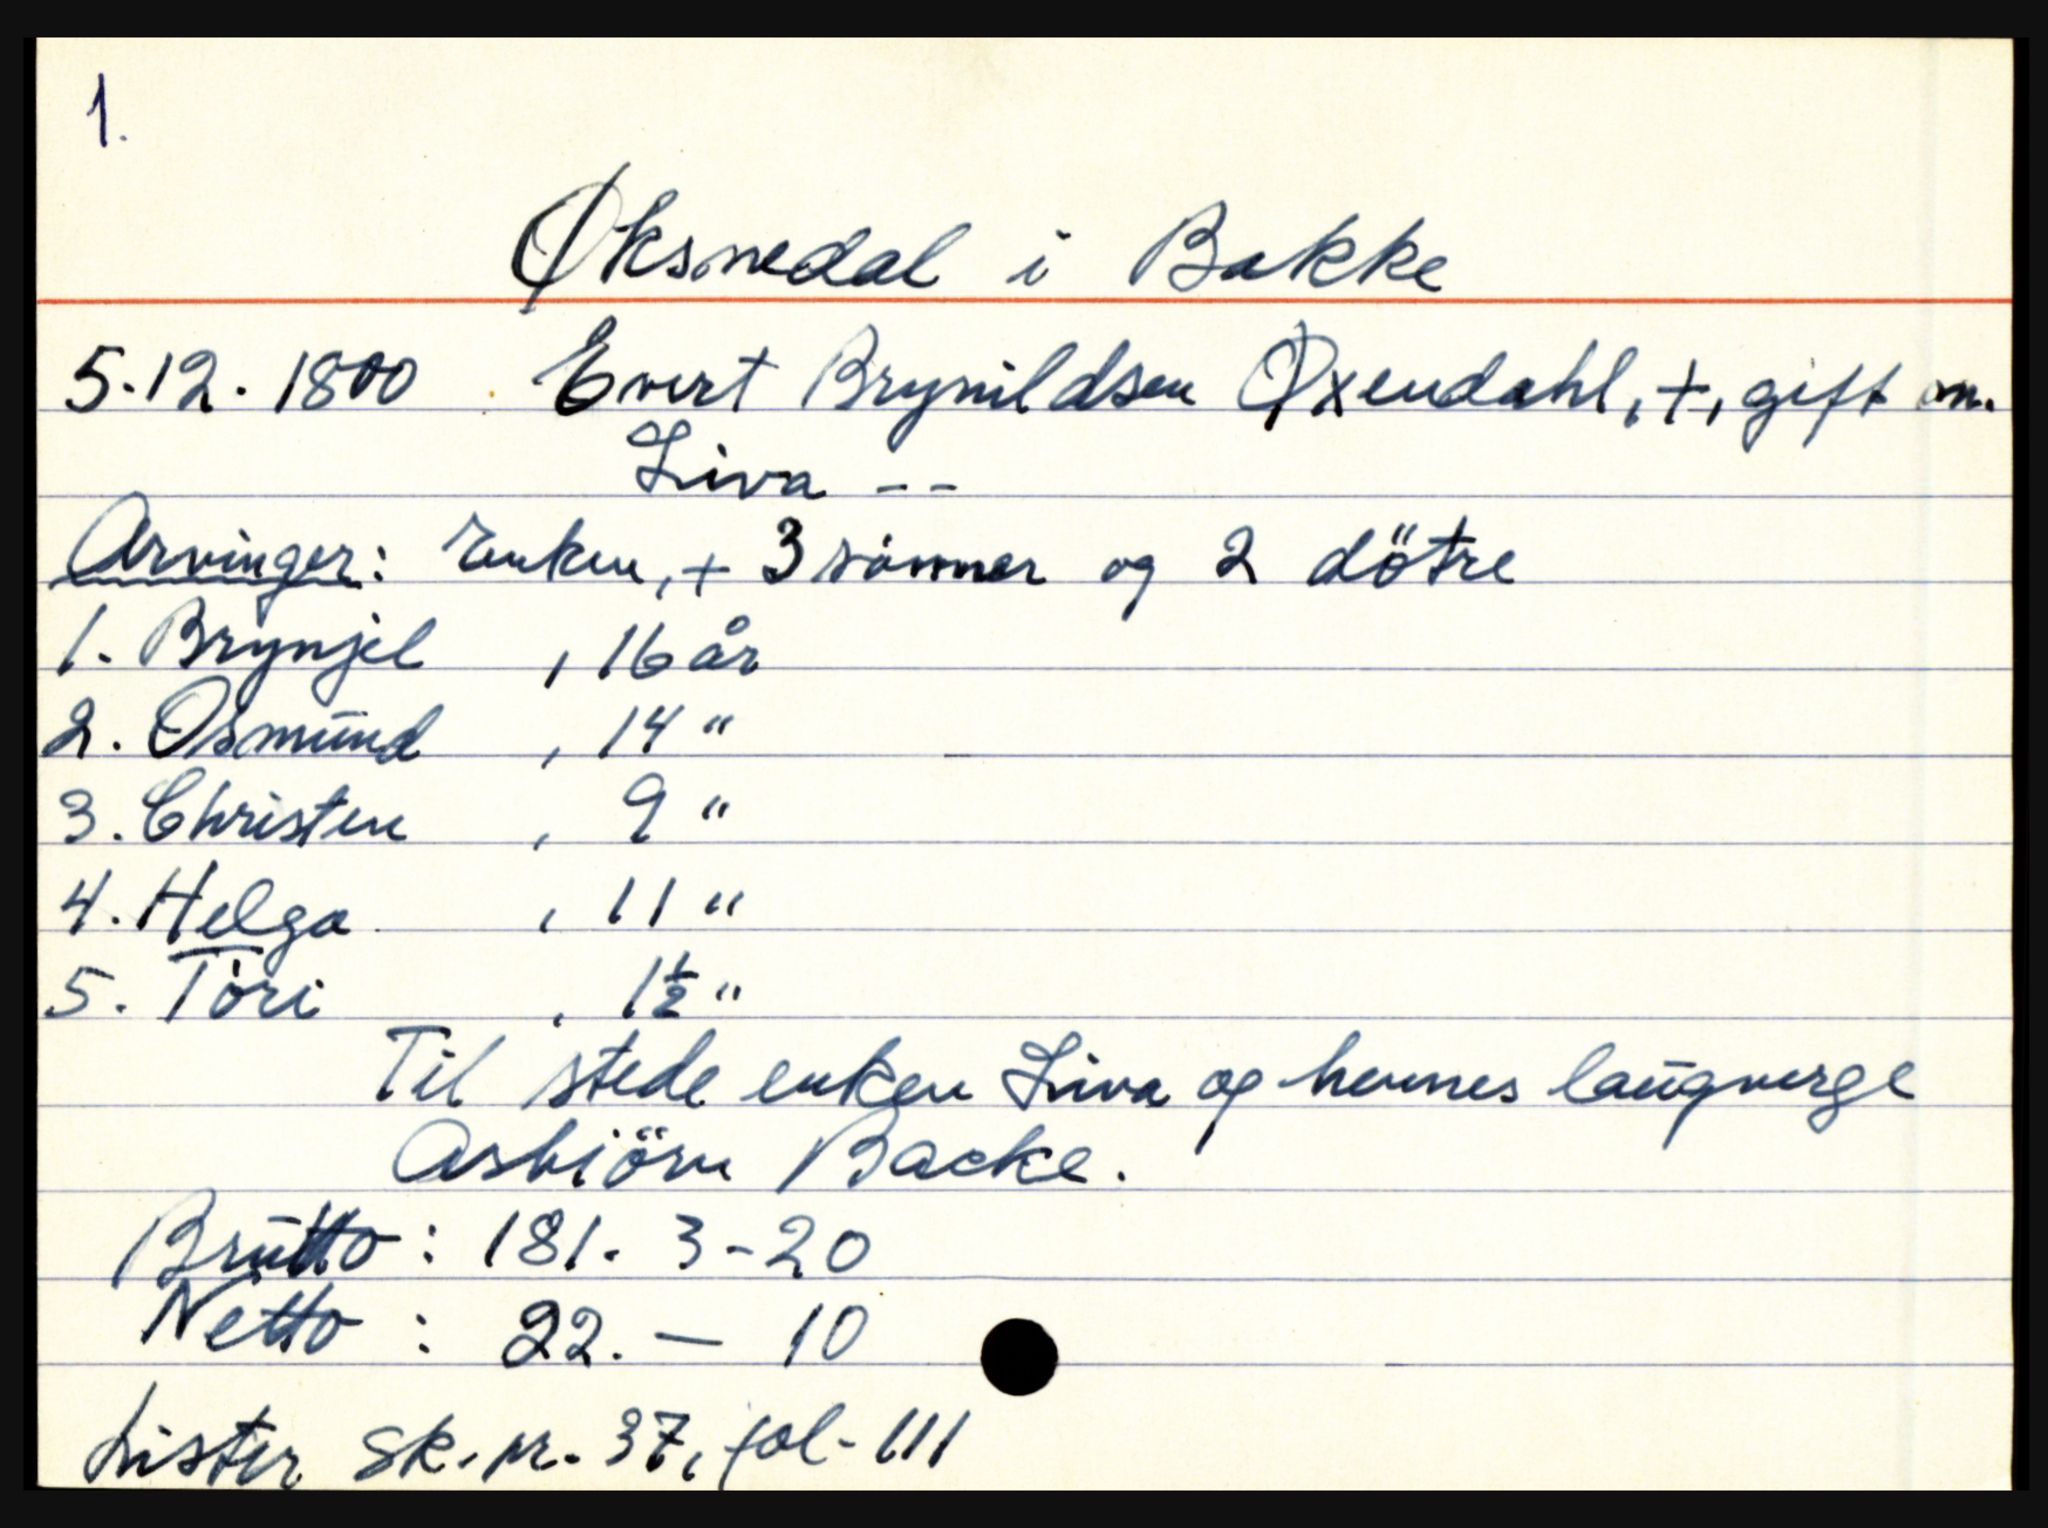 1.
Øksnedal i Bakke
5.12.1800 Evert Brynildsen Øxendahl, +, gift m.
Liva --
Arvinger: Enken, + 3 sönner og 2 dötre
1. Brynjel , 16 år
2. Osmund , 14 "
3. Christen , 9 "
4. Helga , 11 "
5. Tóri , 1½ "
Til stede enken Liva og hennes laugverge
Asbiörn Backe.
Brutto: 181. 3-20
Netto : 22. — 10
Lister sk.pr. 37, fol- 111